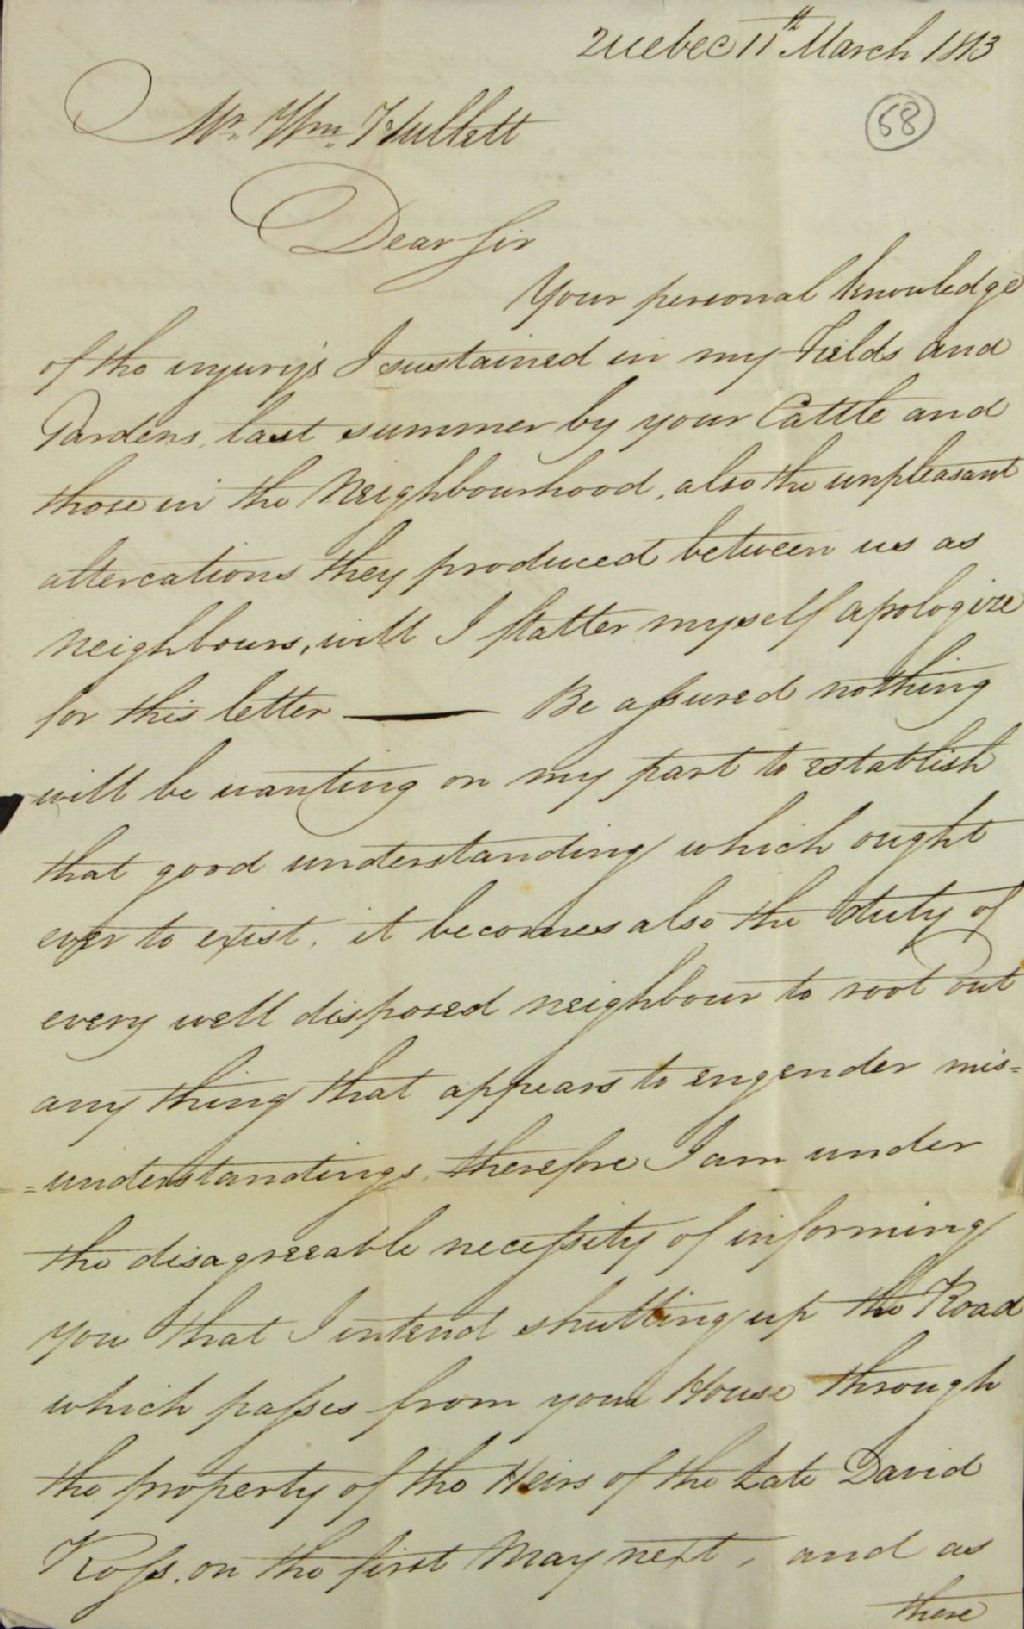 Quebec 11th March 1813
68
Mr. Wm. Hullett
Dear Sir
Your personal knowledge
of the injury's I sustained in my Fields and
Gardens, last summer by your Cattle and
those in the Neighbourhood, also the unpleasant
altercations they produced between us as
neighbours, will I flatter myself apologize
for this letter — Be assured nothing
will be wanting on my part to establish
that good understanding which ought
ever to exist, it becomes also the duty of
every well disposed neighbour to root out
any thing that appears to engender mis=
=understandings, therefore I am under
the disagreeable necessity of informing
you that I intend shutting up the Road
which passes from your House through
the property of the Heirs of the Late David
Ross, on the first May next, and as
there